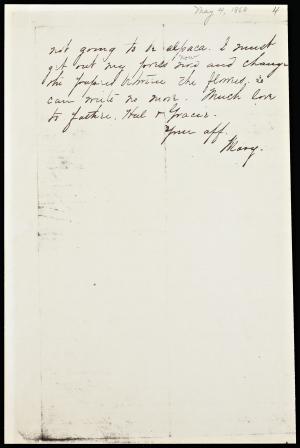 May 4, 1864 4
not going to be alpaca. I must
get out my press now and change
the papers between the flowers, so
can write no more. Much love
to father, Hal & Gracie.
Your aff.
Mary.